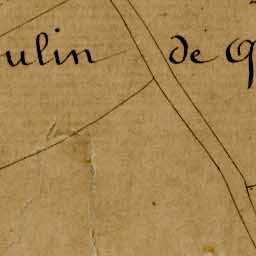 ulin de